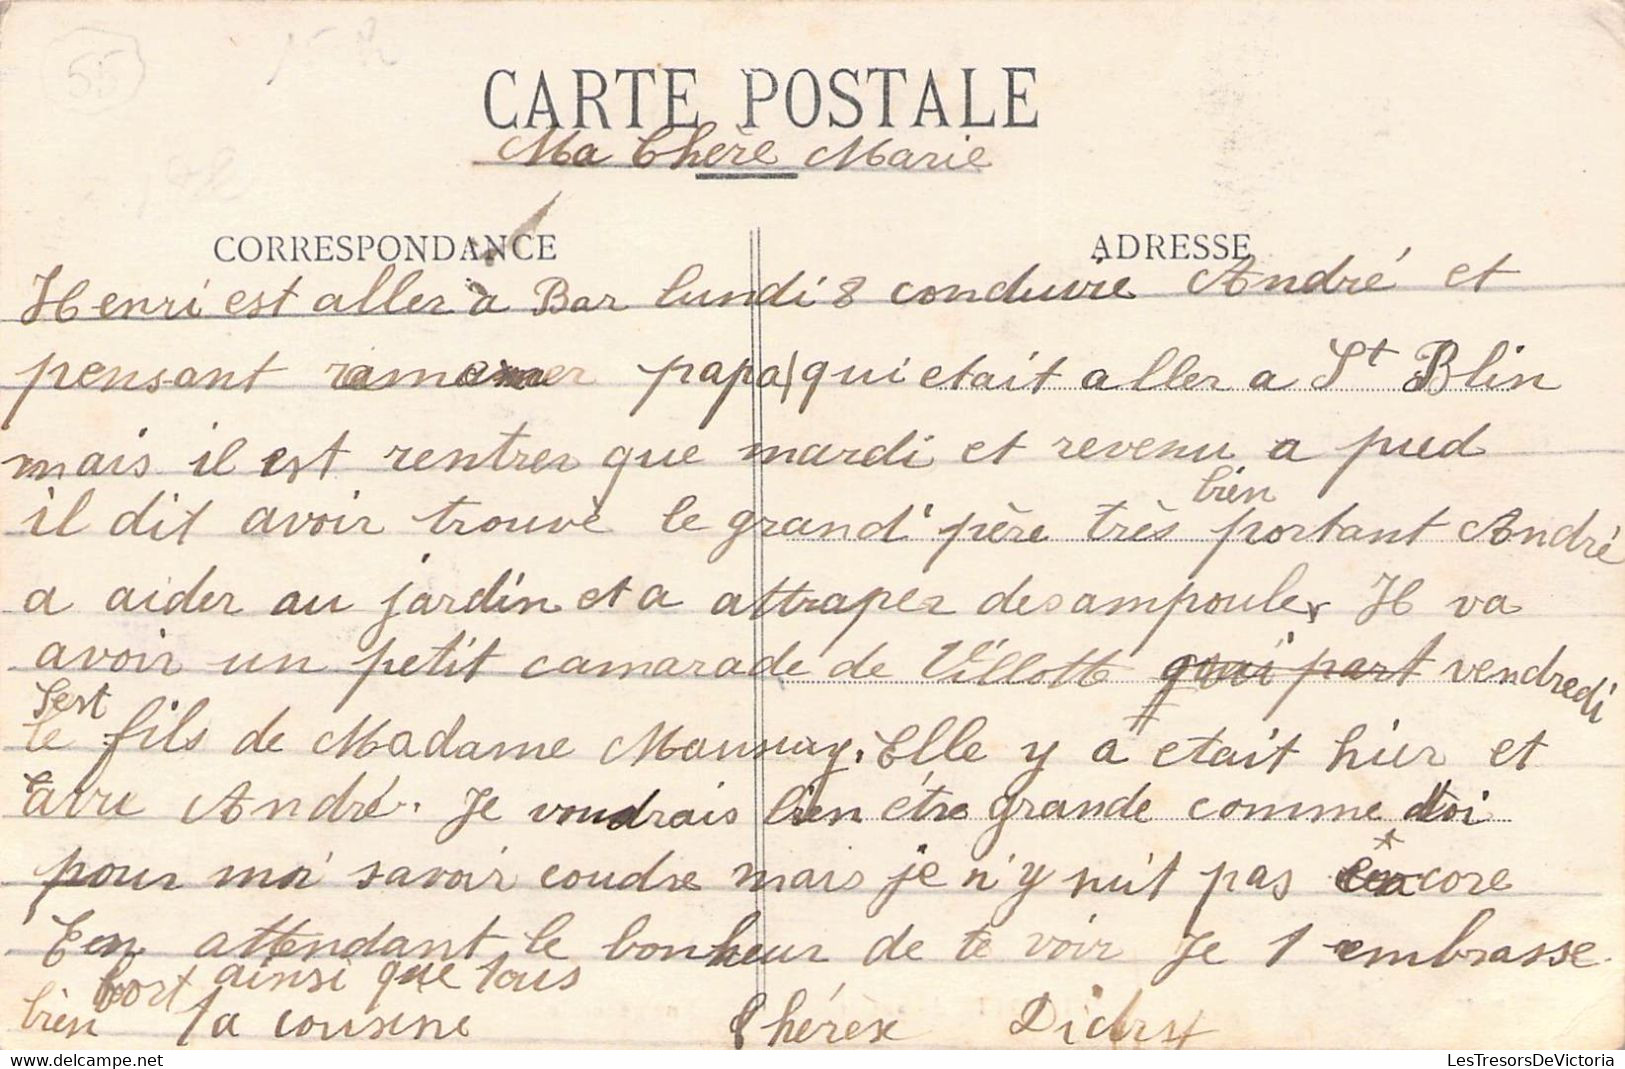 55
CARTE POSTALE
Ma Chère Marie
CORRESPONDANCE
ADRESSE
Henri est aller à Bar lundi 8 conduire André et
pensant ramener papa qui etait aller a St Blin
mais il est rentrer que mardi et revenu a pied
il dit avoir trouvé le grand' père très bien portant André
a aider au jardin et a attraper des ampoules Il va
avoir un petit camarade de Villotte qui part vendredi
Sest
le fils de Madame Elle y a etait hier et
avec André. Je voudrais bien être grande comme toi
pour moi savoir coudre mais je n'y suit pas encore
En attendant le bonheur de te voir Je t embrasse.
bien fort ainsi que tous
Ta cousine Thérèse
LesTresorsDeVictoria.com